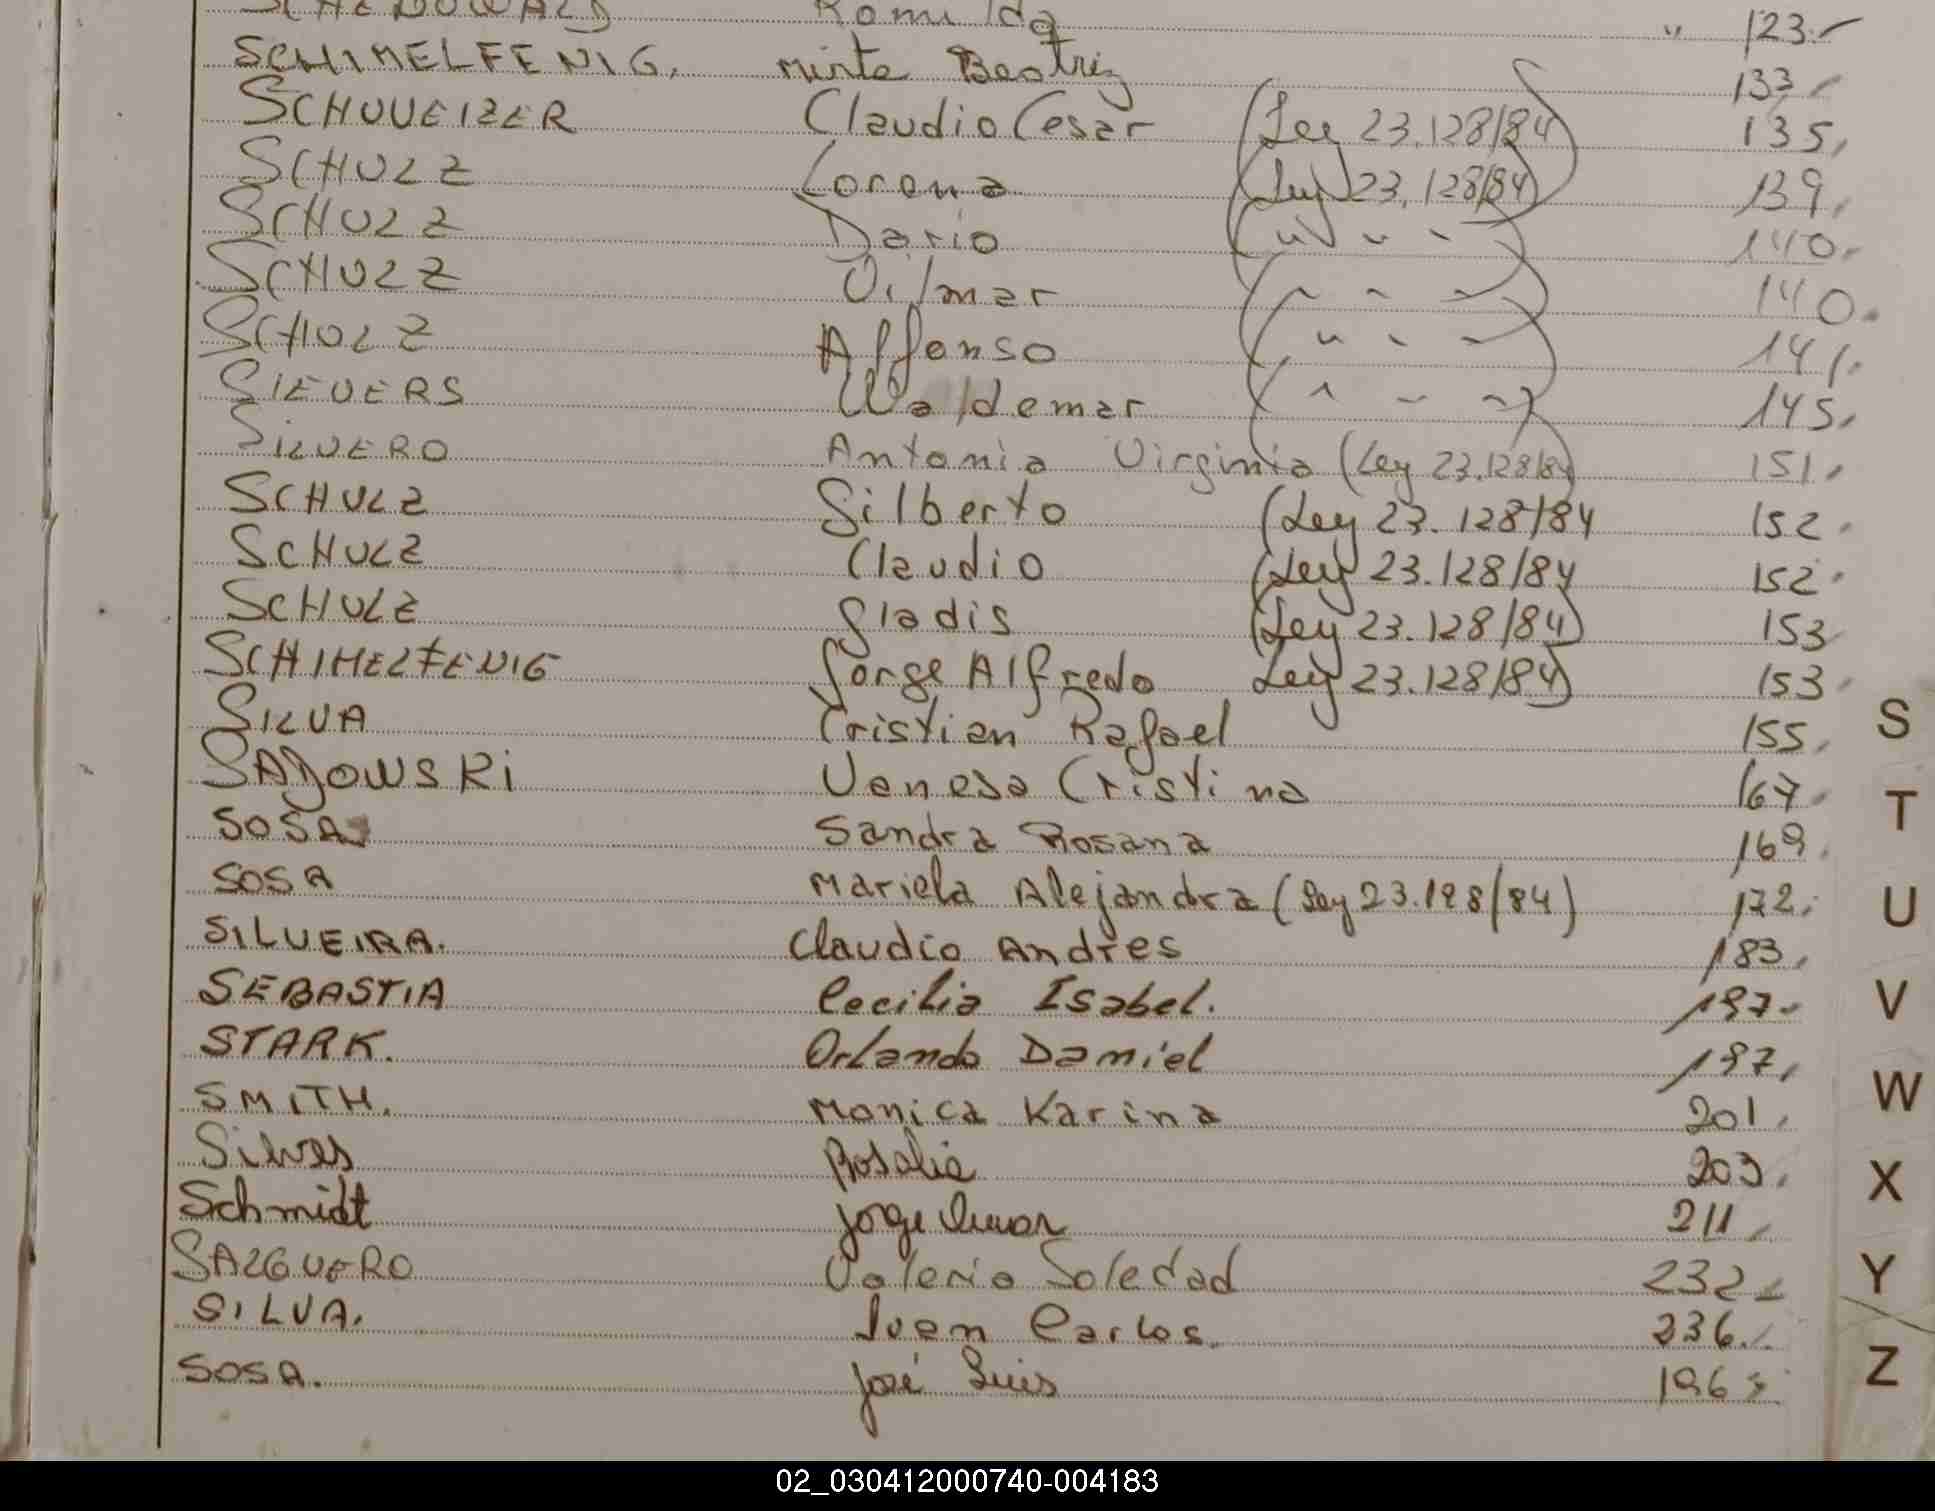 SCHEDOWALD Romilda " 123.-
SCHIMELFENIG, Mirta Beatriz 133
SCHUUEIZER Claudio Cesar (Ley 23.128/84) 135,
SCHULZ Lorena (Ley 23.128/84) 139,
SCHULZ Dario ( " " " ) 140.
SCHULZ Vilmar ( " " " ) 140.
SCHOLZ Affonso ( " " " ) 141.
SIEVERS Waldemar ( " " " ) 145,
SILVERO Antonia Virginia (Ley 23.128/84) 151,
SCHULZ Gilberto (Ley 23.128/84 152.
SCHULZ Claudio (Ley 23.128/84 152.
SCHULZ Gladis (Ley 23.128/84) 153
SCHIMELFENIG Jorge Alfredo Ley 23.128/84) 153
SILVA Cristian Rafael 155,
SADOWSKI Vanesa Cristina 167.
SOSA Sandra Rosana 169.
SOSA Mariela Alejandra (Ley 23.128/84) 172,
SILVEIRA. Claudio Andres 183,
SEBASTIA Cecilia Isabel. 197-
STARK. Orlando Damiel 197,
SMITH. Monica Karina 201,
Silves Rosalia 203,
Schmidt Jorge Omar 211,
SALGUERO Valeria Soledad 232-
SILVA. Juan Carlos. 236.
SOSA. José Luis 196
S
T
U
V
W
X
Y
Z
02_030412000740-004183